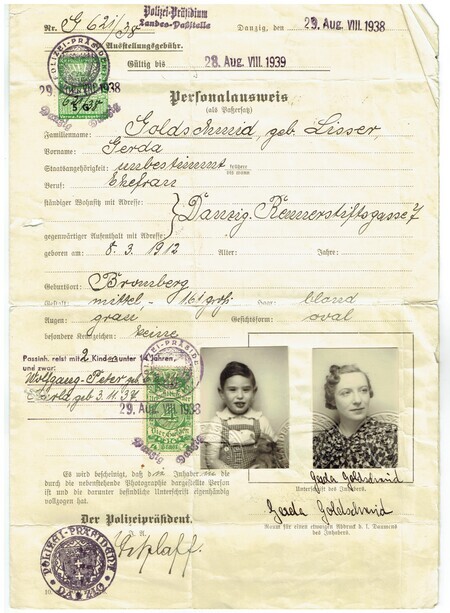 Polizei-Präsidium
Landes-Paßstelle
Nr. G 621/38
Danzig, den 29. Aug. VIII. 1938
Ausstellungsgebühr.
Gültig bis 28. Aug. VIII. 1939
POLIZEI-PRÄSIDIUM
29. 1938
Danzig Danzig
Personalausweis
(als Paßersatz)
Familienname: Goldschmid, geb Lisser,
Vorname: Gerda
Staatsangehörigkeit: unbestimmt frühere
Beruf: Ehefrau
ständiger Wohnsitz mit Adresse:
Danzig, Rennerstiftsgasse 7
gegenwärtiger Aufenthalt mit Adresse:
geboren am: 8. 3. 1912 Alter: Jahre:
Geburtsort: Bromberg
Gestalt: mittel, - 1.61 groß Haar: blond
Augen: grau Gesichtsform: oval
besondere Kennzeichen: keine
Passinh. reist mit 2 Kindern unter 14 Jahren,
und zwar:
Wolfgang-Peter geb
geb 3.11.37
POLIZEI-PRÄSIDIUM
29. Aug. VIII. 1938
Danzig
Gerda Goldschmid
Unterschrift des Inhabers.
Gerda Goldschmid
Raum für einen etwaigen Abdruck d. l. Daumens
des Inhabers.
Es wird bescheinigt, daß die Inhaberin die
durch die nebenstehende Photographie dargestellte Person
ist und die darunter befindliche Unterschrift eigenhändig
vollzogen hat.
Der Polizeipräsident.
I. A.
POLIZEI-PRÄSIDIUM
DANZIG